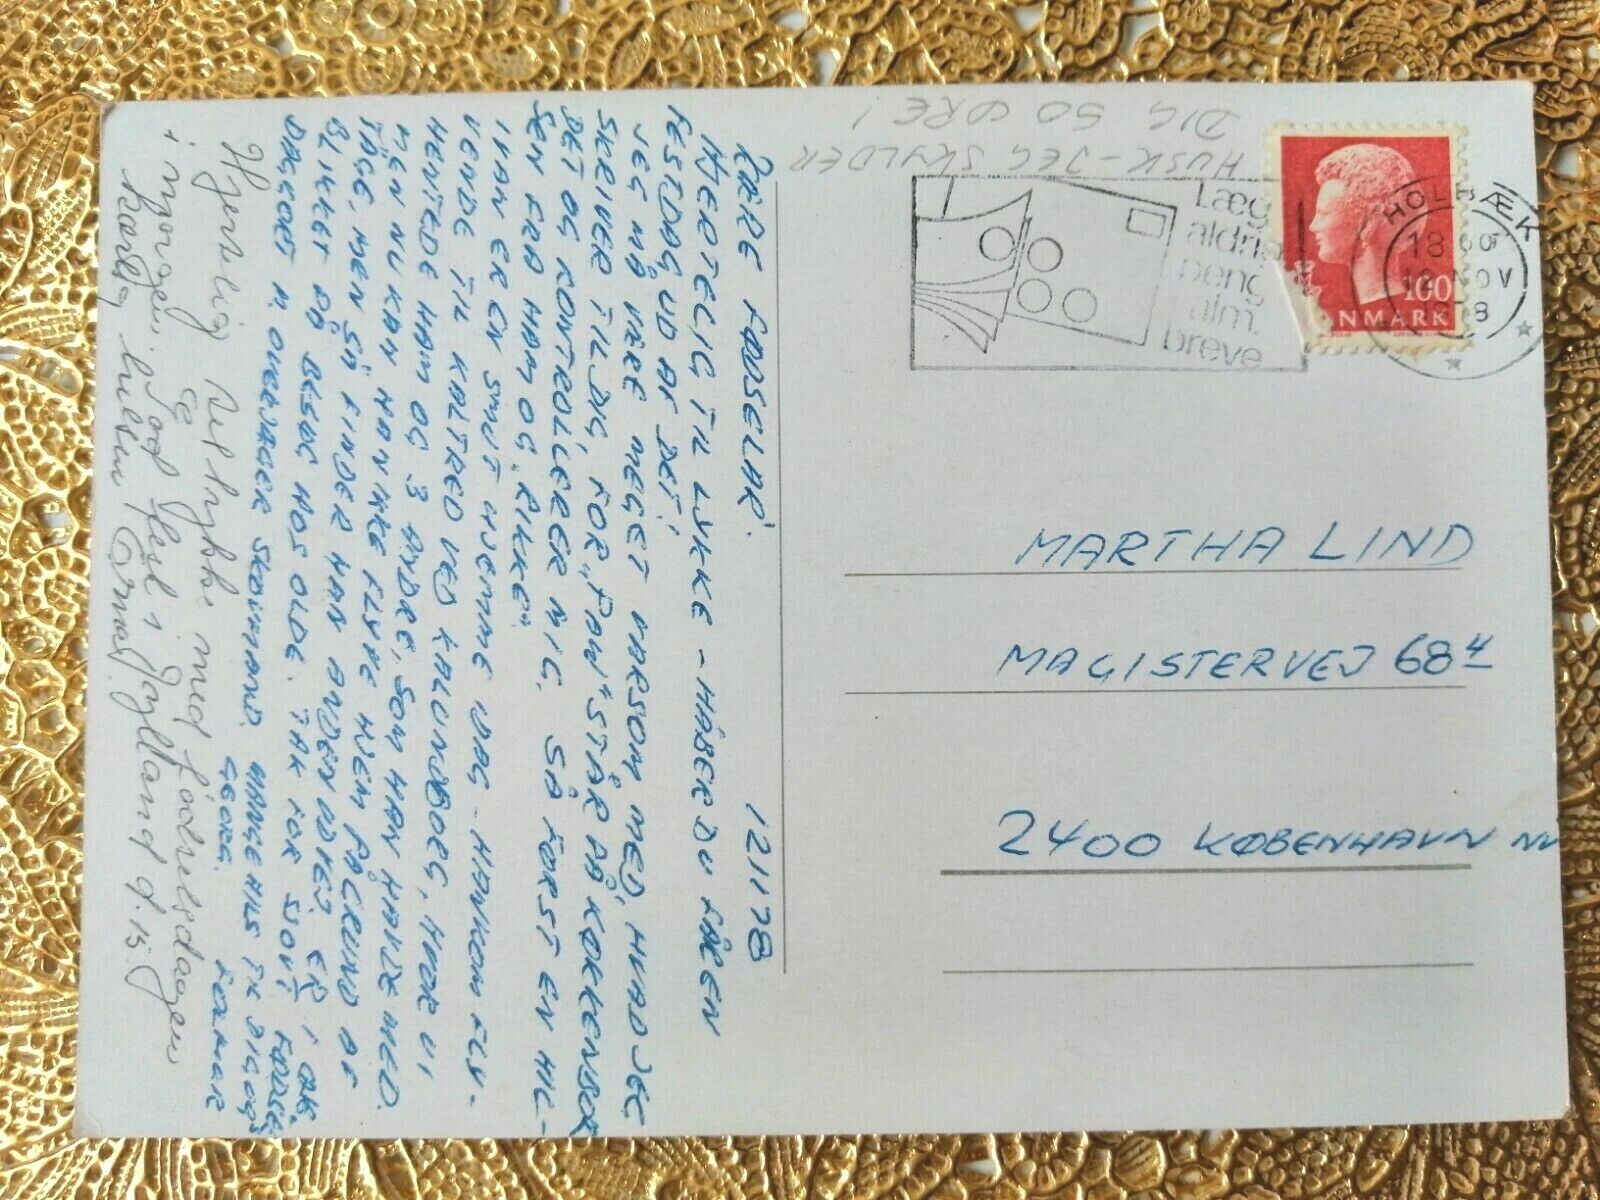 HUSK - JEG SKYLDER
DIG 50 ØRE!
Læg
aldrig
peng
alm.
breve
HOLBÆK
18 00
NOV
100
NMARK
MARTHA LIND
MAGISTERVEJ 68 4
2400 KØBENHAVN NV
12 11 78
KÆRE FØDSELAR.
HJERTELIG TIL LYKKE - HÅBER DU FÅR EN
FESTDAG UD AF DET!
JEG MÅ VÆRE MEGET VARSOM MED, HVAD JEG
SKRIVER TIL DIG, FOR „PAW" STÅR PÅ KØKKENBOR
DET OG KONTROLLERER MIG. SÅ FØRST EN HIL-
SEN FRA HAM OG „RIKKE"
IVAN ER EN SMUT HJEMME IDAG - HAN KOM FLY-
VENDE TIL KALTRED VED KALUNDBORG, HVOR VI
HENTEDE HAM OG 3 ANDRE, SOM HAN HAVDE MED.
MEN NU KAN HAN IKKE FLYVE HJEM PÅ GRUND AF
TÅGE, MEN SÅ FINDER HAN ANDEN UDVEJ. ER I ØJE
BLIKKET PÅ BESØG HOS OLDE. TAK FOR SIDST
DAGKORT M. OVERJÆGER SKOVMAND. MANGE HILS TIL DIG OGS
GEORG.
Hjerteligt til lykke med fødselsdagen
i morgen. God Fest i Jylland d. 15.
Kærlig hilsen